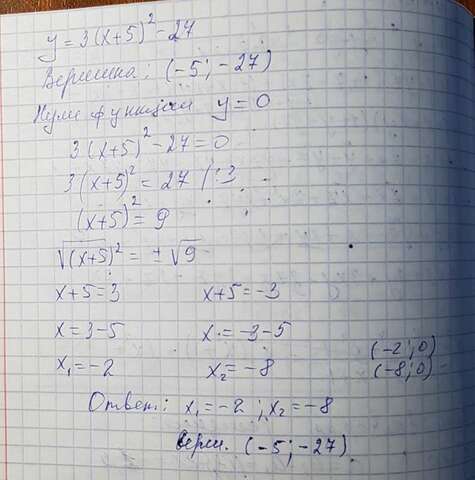 y = 3(x+5)² - 27
Вершина: (-5; -27)
Нули функции y = 0
3(x+5)² - 27 = 0
3(x+5)² = 27 | :3
(x+5)² = 9
√(x+5)² = ± √9
x+5 = 3 x+5 = -3
x = 3-5 x = -3-5
x₁ = -2 x₂ = -8 (-2; 0)
(-8; 0)
Ответ: x₁ = -2; x₂ = -8
Верш. (-5; -27)